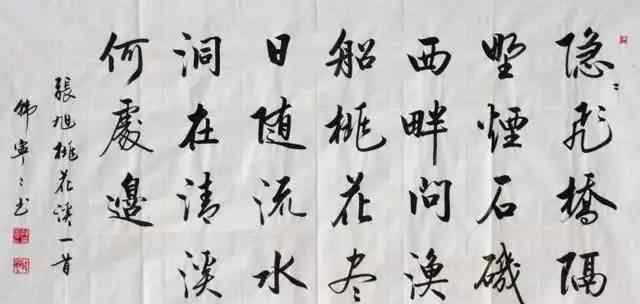 隐〻飛橋隔
野煙石磯
西畔問漁
船桃花尽
日随流水
洞在清溪
何處邊
張旭桃花溪一首
寧〻书